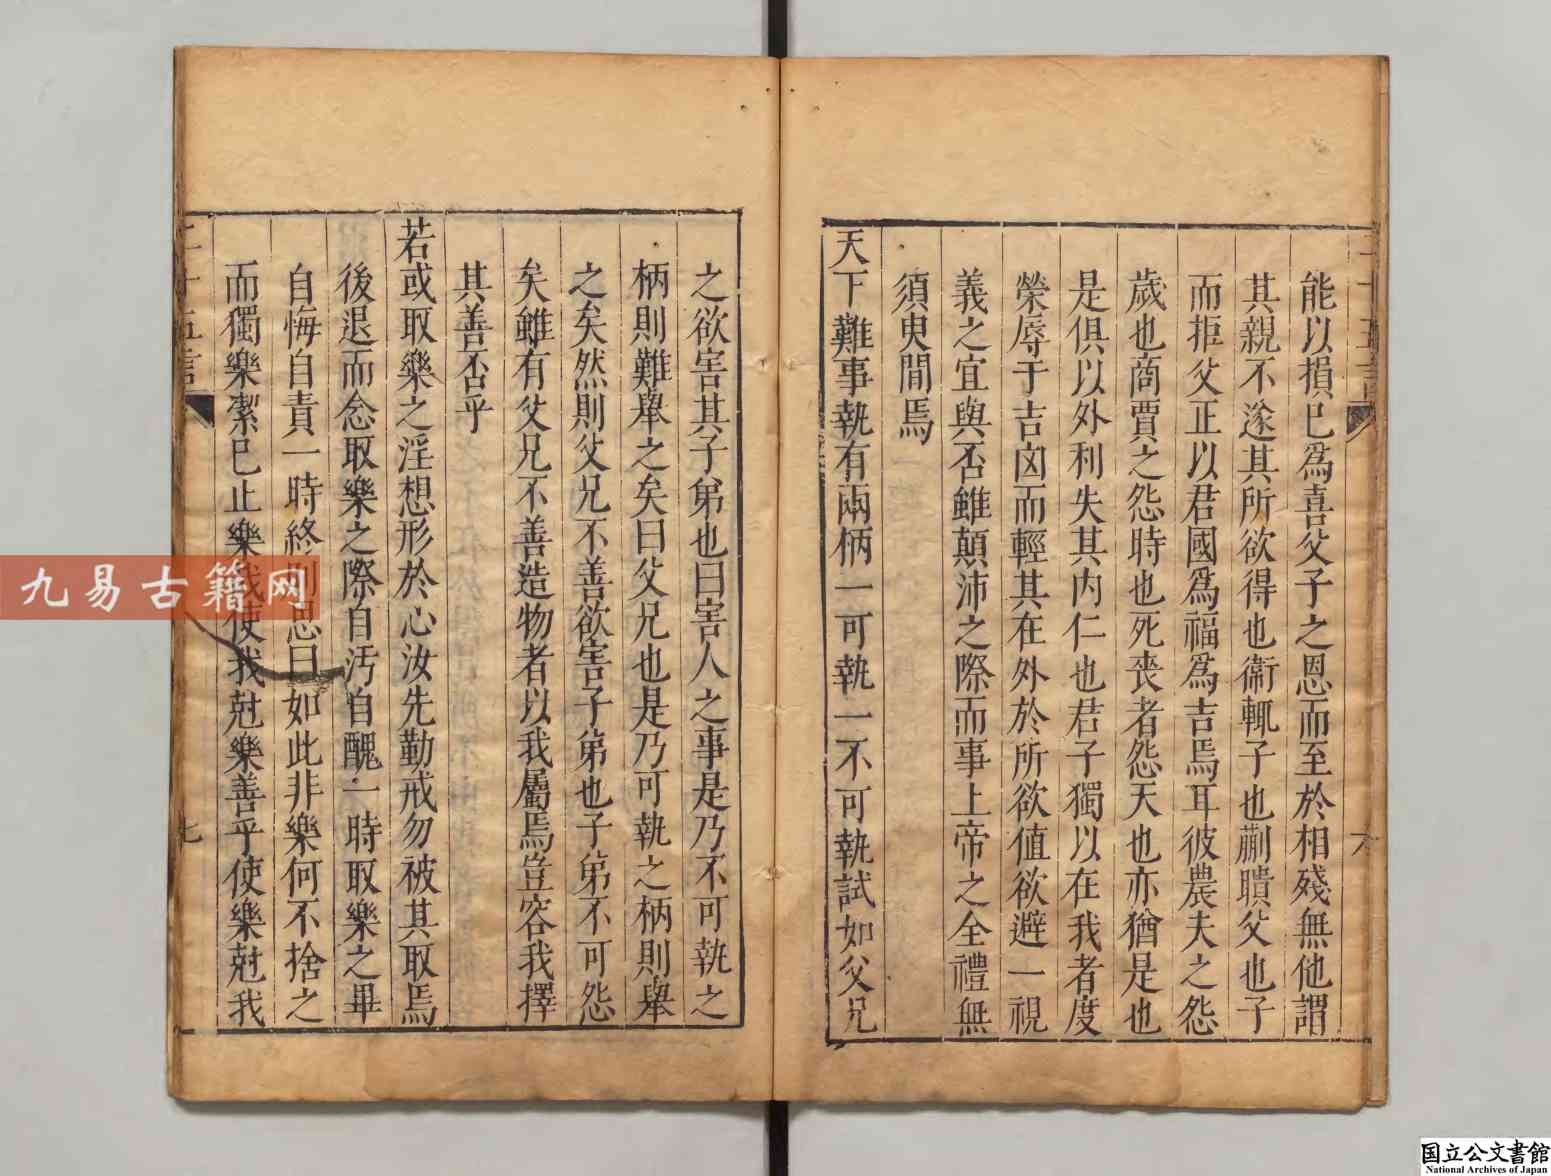 能以損已為喜父子之恩而至於相殘無他謂
其親不遂其所欲得也衞輒子也蒯聵父也子
而拒父正以君國爲福爲吉焉耳彼農夫之怨
歲也商賈之怨時也死喪者怨天也亦猶是也
是俱以外利失其内仁也君子獨以在我者度
榮辱于吉凶而輕其在外於所欲值欲避一視
義之宜與否雖顛沛之際而事上帝之全禮無
須臾間焉
天下難事執有兩柄一可執一不可執試如父兄
之欲害其子弟也曰害人之事是乃不可執之
柄則難舉之矣曰父兄也是乃可執之柄則舉
之矣然則父兄不善欲害子弟也子弟不可怨
矣雖有父兄不善造物者以我屬焉豈容我擇
其善否乎
若或取樂之淫想形於心汝先勤戒勿被其取焉
後退而念取樂之際自汚自醜一時取樂之畢
自悔自責一時終則思曰如此非樂何不捨之
而獨樂潔已止樂我使我尅樂善乎使樂尅我
二十五言
七
二十五言
六
九易古籍网
国立公文書館
National Archives of Japan